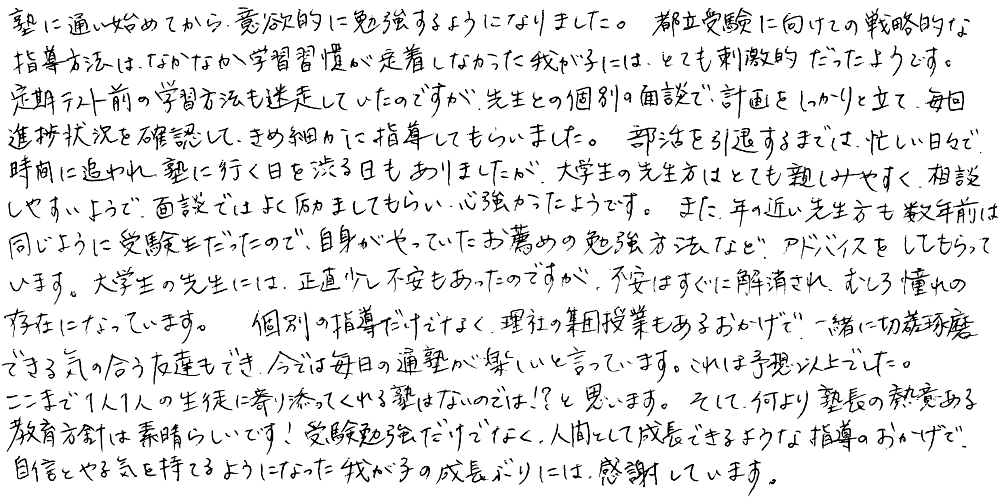 塾に通い始めてから、意欲的に勉強するようになりました。 都立受験に向けての戦略的な
指導方法は、なかなか学習習慣が定着しなかった我が子には、とても刺激的だったようです。
定期テスト前の学習方法も迷走していたのですが、先生との個別の面談で、計画をしっかりと立て、毎回
進捗状況を確認して、きめ細かに指導してもらいました。 部活を引退するまでは、忙しい日々で
時間に追われ、塾に行く日を渋る日もありましたが、大学生の先生方はとても親しみやすく、相談
しやすいようで、面談ではよく励ましてもらい、心強かったようです。 また、年の近い先生方も数年前は
同じように受験生だったので、自身がやっていたお薦めの勉強方法など、アドバイスをしてもらって
います。大学生の先生には、正直少し不安もあったのですが、不安はすぐに解消され、むしろ憧れの
存在になっています。 個別の指導だけでなく、理社の集団授業もあるおかげで、一緒に切磋琢磨
できる気の合う友達もでき、今では毎日の通塾が楽しいと言っています。これは予想以上でした。
ここまで1人1人の生徒に寄り添ってくれる塾はないのでは!?と思います。 そして、何より塾長の熱意ある
教育方針は素晴らしいです!受験勉強だけでなく、人間として成長できるような指導のおかげで、
自信とやる気を持てるようになった我が子の成長ぶりには、感謝しています。